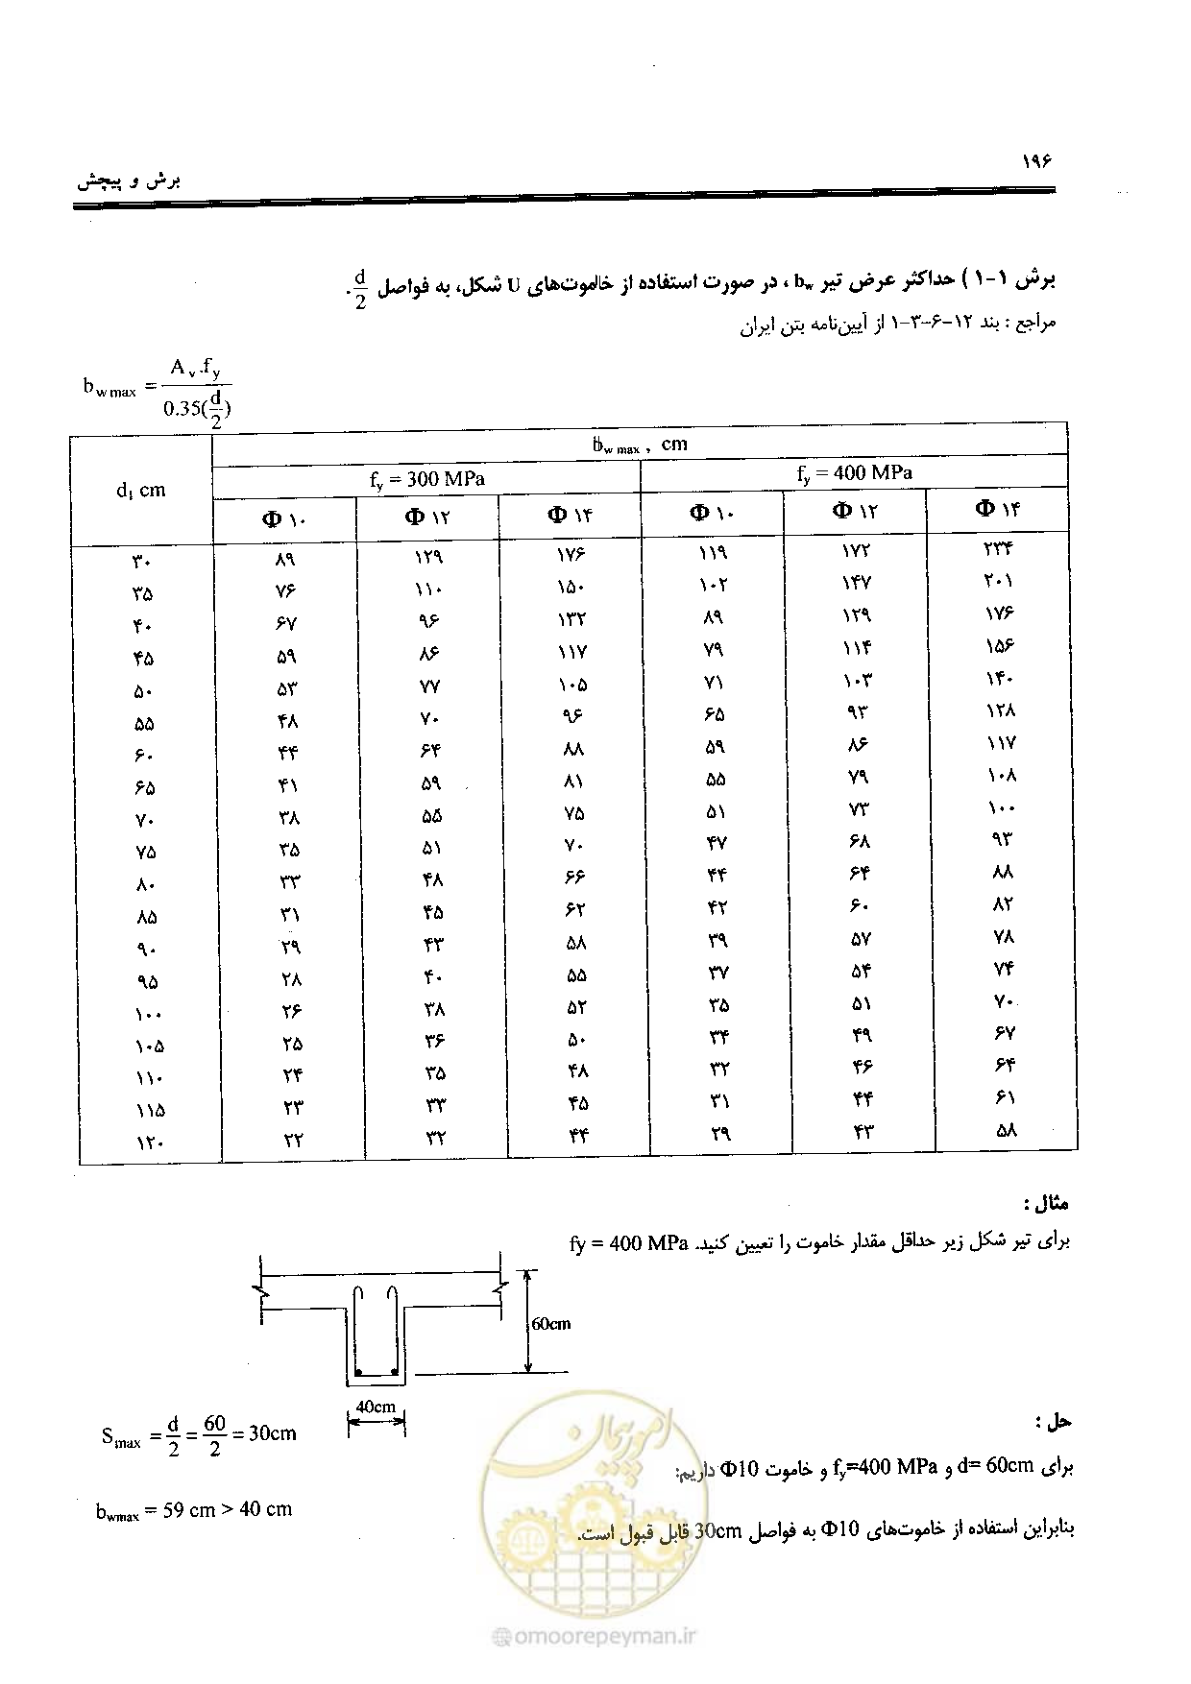 ۱۹۶
برش و پیچش
برش ۱-۱ ) حداکثر عرض تیر bw ، در صورت استفاده از خاموت‌های U شکل، به فواصل d/2.
مراجع : بند ۱۲-۶-۳-۱ از آیین‌نامه بتن ایران
b w max = A v .f y / 0.35(d/2)
d, cm | b w max , cm
fy = 300 MPa | fy = 400 MPa
Φ ۱۰ | Φ ۱۲ | Φ ۱۴ | Φ ۱۰ | Φ ۱۲ | Φ ۱۴
۳۰ | ۸۹ | ۱۲۹ | ۱۷۶ | ۱۱۹ | ۱۷۲ | ۲۳۴
۳۵ | ۷۶ | ۱۱۰ | ۱۵۰ | ۱۰۲ | ۱۴۷ | ۲۰۱
۴۰ | ۶۷ | ۹۶ | ۱۳۲ | ۸۹ | ۱۲۹ | ۱۷۶
۴۵ | ۵۹ | ۸۶ | ۱۱۷ | ۷۹ | ۱۱۴ | ۱۵۶
۵۰ | ۵۳ | ۷۷ | ۱۰۵ | ۷۱ | ۱۰۳ | ۱۴۰
۵۵ | ۴۸ | ۷۰ | ۹۶ | ۶۵ | ۹۳ | ۱۲۸
۶۰ | ۴۴ | ۶۴ | ۸۸ | ۵۹ | ۸۶ | ۱۱۷
۶۵ | ۴۱ | ۵۹ | ۸۱ | ۵۵ | ۷۹ | ۱۰۸
۷۰ | ۳۸ | ۵۵ | ۷۵ | ۵۱ | ۷۳ | ۱۰۰
۷۵ | ۳۵ | ۵۱ | ۷۰ | ۴۷ | ۶۸ | ۹۳
۸۰ | ۳۳ | ۴۸ | ۶۶ | ۴۴ | ۶۴ | ۸۸
۸۵ | ۳۱ | ۴۵ | ۶۲ | ۴۲ | ۶۰ | ۸۲
۹۰ | ۲۹ | ۴۳ | ۵۸ | ۳۹ | ۵۷ | ۷۸
۹۵ | ۲۸ | ۴۰ | ۵۵ | ۳۷ | ۵۴ | ۷۴
۱۰۰ | ۲۶ | ۳۸ | ۵۲ | ۳۵ | ۵۱ | ۷۰
۱۰۵ | ۲۵ | ۳۶ | ۵۰ | ۳۴ | ۴۹ | ۶۷
۱۱۰ | ۲۴ | ۳۵ | ۴۸ | ۳۲ | ۴۶ | ۶۴
۱۱۵ | ۲۳ | ۳۳ | ۴۵ | ۳۱ | ۴۴ | ۶۱
۱۲۰ | ۲۲ | ۳۲ | ۴۴ | ۲۹ | ۴۳ | ۵۸
مثال :
برای تیر شکل زیر حداقل مقدار خاموت را تعیین کنید. fy = 400 MPa
60cm
40cm
حل :
Smax = d/2 = 60/2 = 30cm
برای d= 60cm و fy=400 MPa و خاموت Φ10 داریم:
bwmax = 59 cm > 40 cm
بنابراین استفاده از خاموت‌های Φ10 به فواصل 30cm قابل قبول است.
امور پیمان
@omoorepeyman.ir